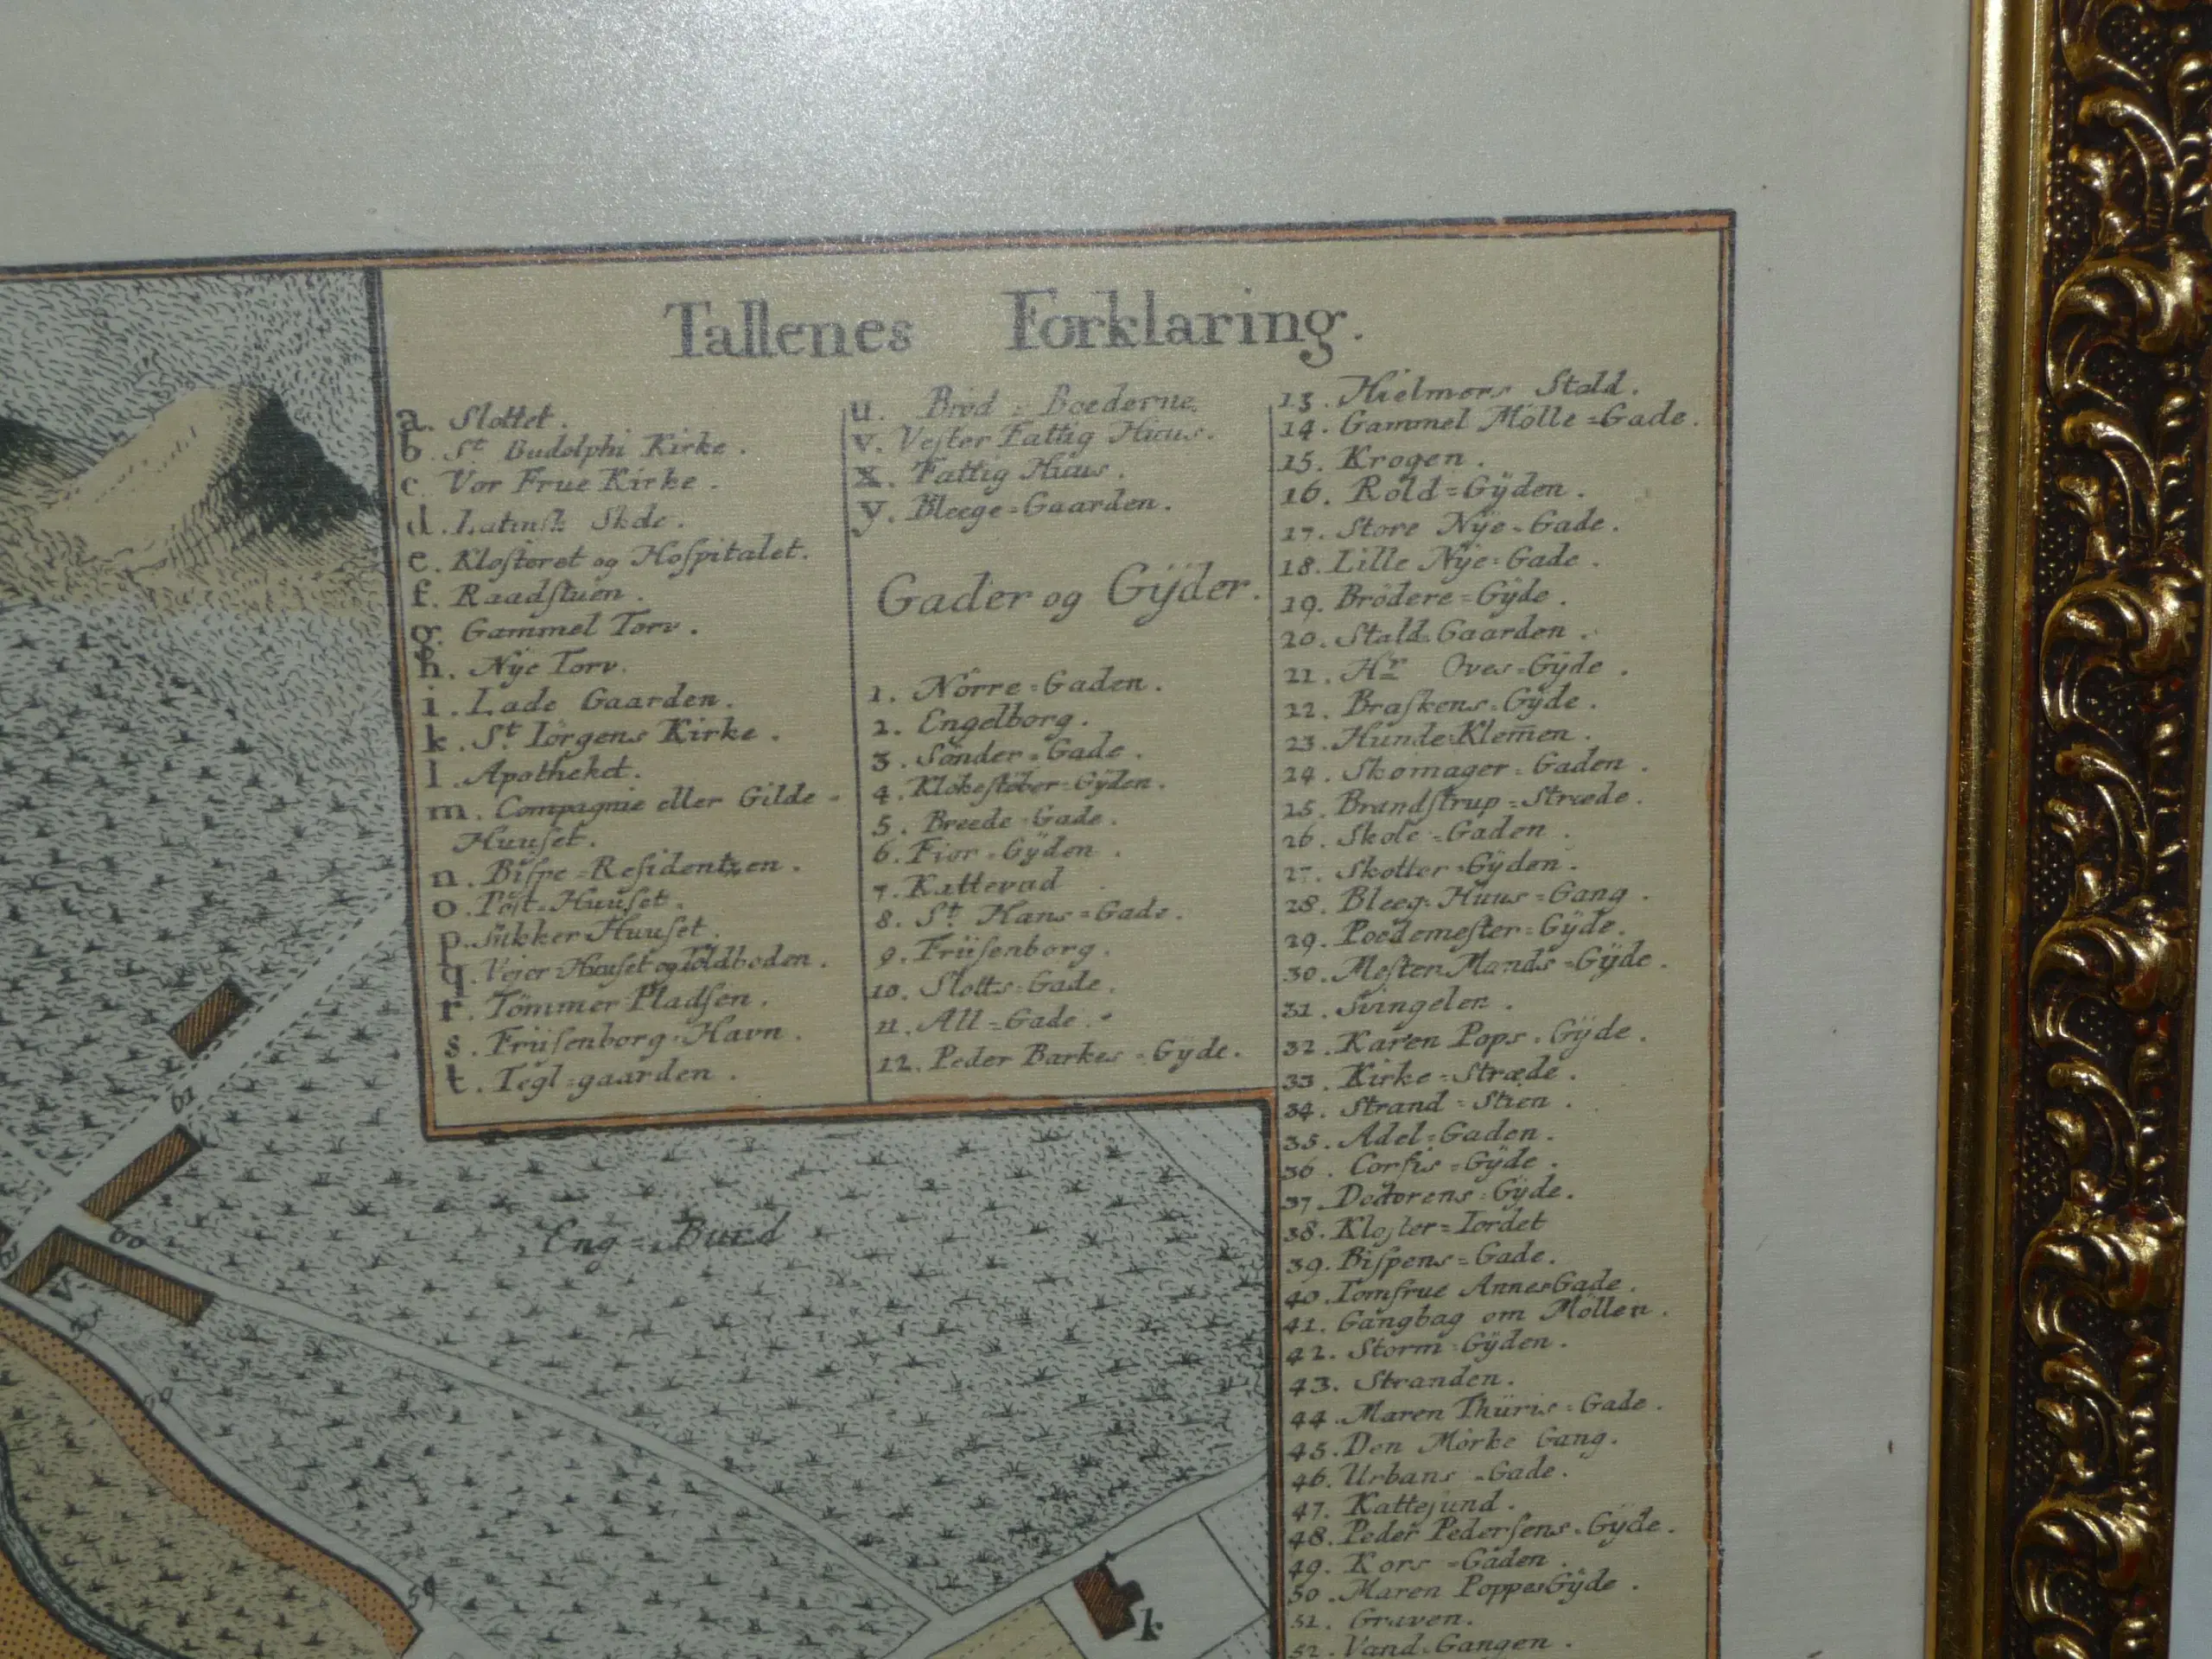 Tallenes Forklaring.
a. Slottet.
b. St Budolphi Kirke.
c. Vor Frue Kirke.
d. Latinsk Skole.
e. Kloſteret og Hoſpitalet.
f. Raadſtuen.
g. Gammel Torv.
h. Nÿe Torv.
i. Lade Gaarden.
k. St. Iörgens Kirke.
l. Apotheket.
m. Compagnie eller Gilde=
Huuſet.
n. Biſpe=Reſidentzen.
o. Poſt=Huuſet.
p. Sukker Huuſet.
q. Vejer Huuſet og Toldboden.
r. Tömmer Pladſen.
s. Früſenborg Havn.
t. Tegl=gaarden.
u. Bröd=Boederne.
v. Veſter Fattig Huus.
x. Fattig Huus.
y. Bleege=Gaarden.
Gader og Gÿder.
1. Nörre=Gaden.
2. Engelborg.
3. Sönder=Gade.
4. Klokeſtöber=Gÿden.
5. Breede=Gade.
6. Fior=Gÿden.
7. Kattevad
8. St. Hans=Gade.
9. Früſenborg.
10. Slotts=Gade.
11. All=Gade.
12. Peder Barkes=Gÿde.
13. Hielmers Stald.
14. Gammel Mölle=Gade.
15. Krogen.
16. Rold=Gÿden.
17. Store Nÿe=Gade.
18. Lille Nÿe=Gade.
19. Brödere=Gÿde.
20. Stald=Gaarden.
21. Hr Oves=Gÿde.
22. Braſkens=Gÿde.
23. Hunde Klem̄en.
24. Skomager=Gaden.
25. Brandſtrup=Stræde.
26. Skole=Gaden.
27. Skotter=Gÿden.
28. Bleeg=Huus=Gang.
29. Poedemeſter=Gÿde.
30. Meſter Mands=Gÿde.
31. Svingelen.
32. Karen Pops=Gÿde.
33. Kirke=Stræde.
34. Strand=Stien.
35. Adel=Gaden.
36. Corfis=Gÿde.
37. Doctorens=Gÿde.
38. Kloſter=Iordet
39. Biſpens=Gade.
40. Iomfrue Annes Gade.
41. Gangbag om Möllen.
42. Storm=Gÿden.
43. Stranden.
44. Maren Thüris=Gade.
45. Den Mörke Gang.
46. Urbans=Gade.
47. Katteſund.
48. Peder Pederſens=Gÿde.
49. Kors=Gaden.
50. Maren Poppes Gÿde.
51. Graven.
52. Vand=Gangen.
Eng=Bund
61
60
59
59
k